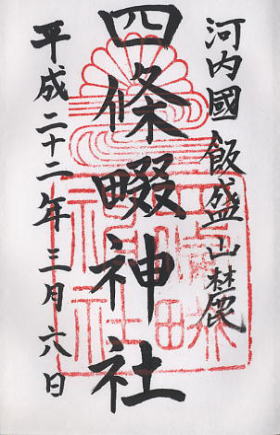 河内國飯盛山麓
四條畷神社
平成二十二年三月六日
四條畷神社